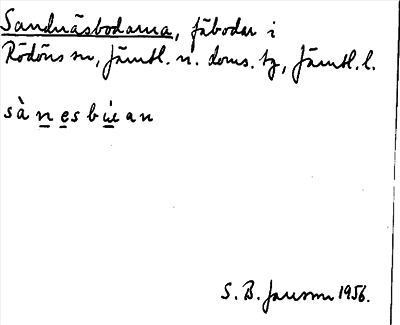 Sandnäsbodarna, fäbodar i
Rödöns sn, Jämtl. n. doms. tg, Jämtl. l.
sànesbùan
S. B. Jansson 1956.